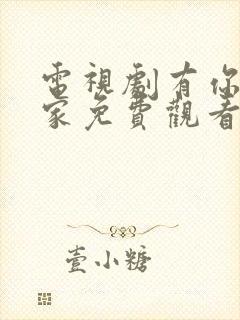 電視劇有你
家免費觀看
壹小糖